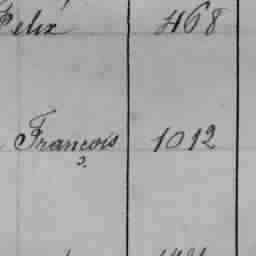 Felix 468
François 1012